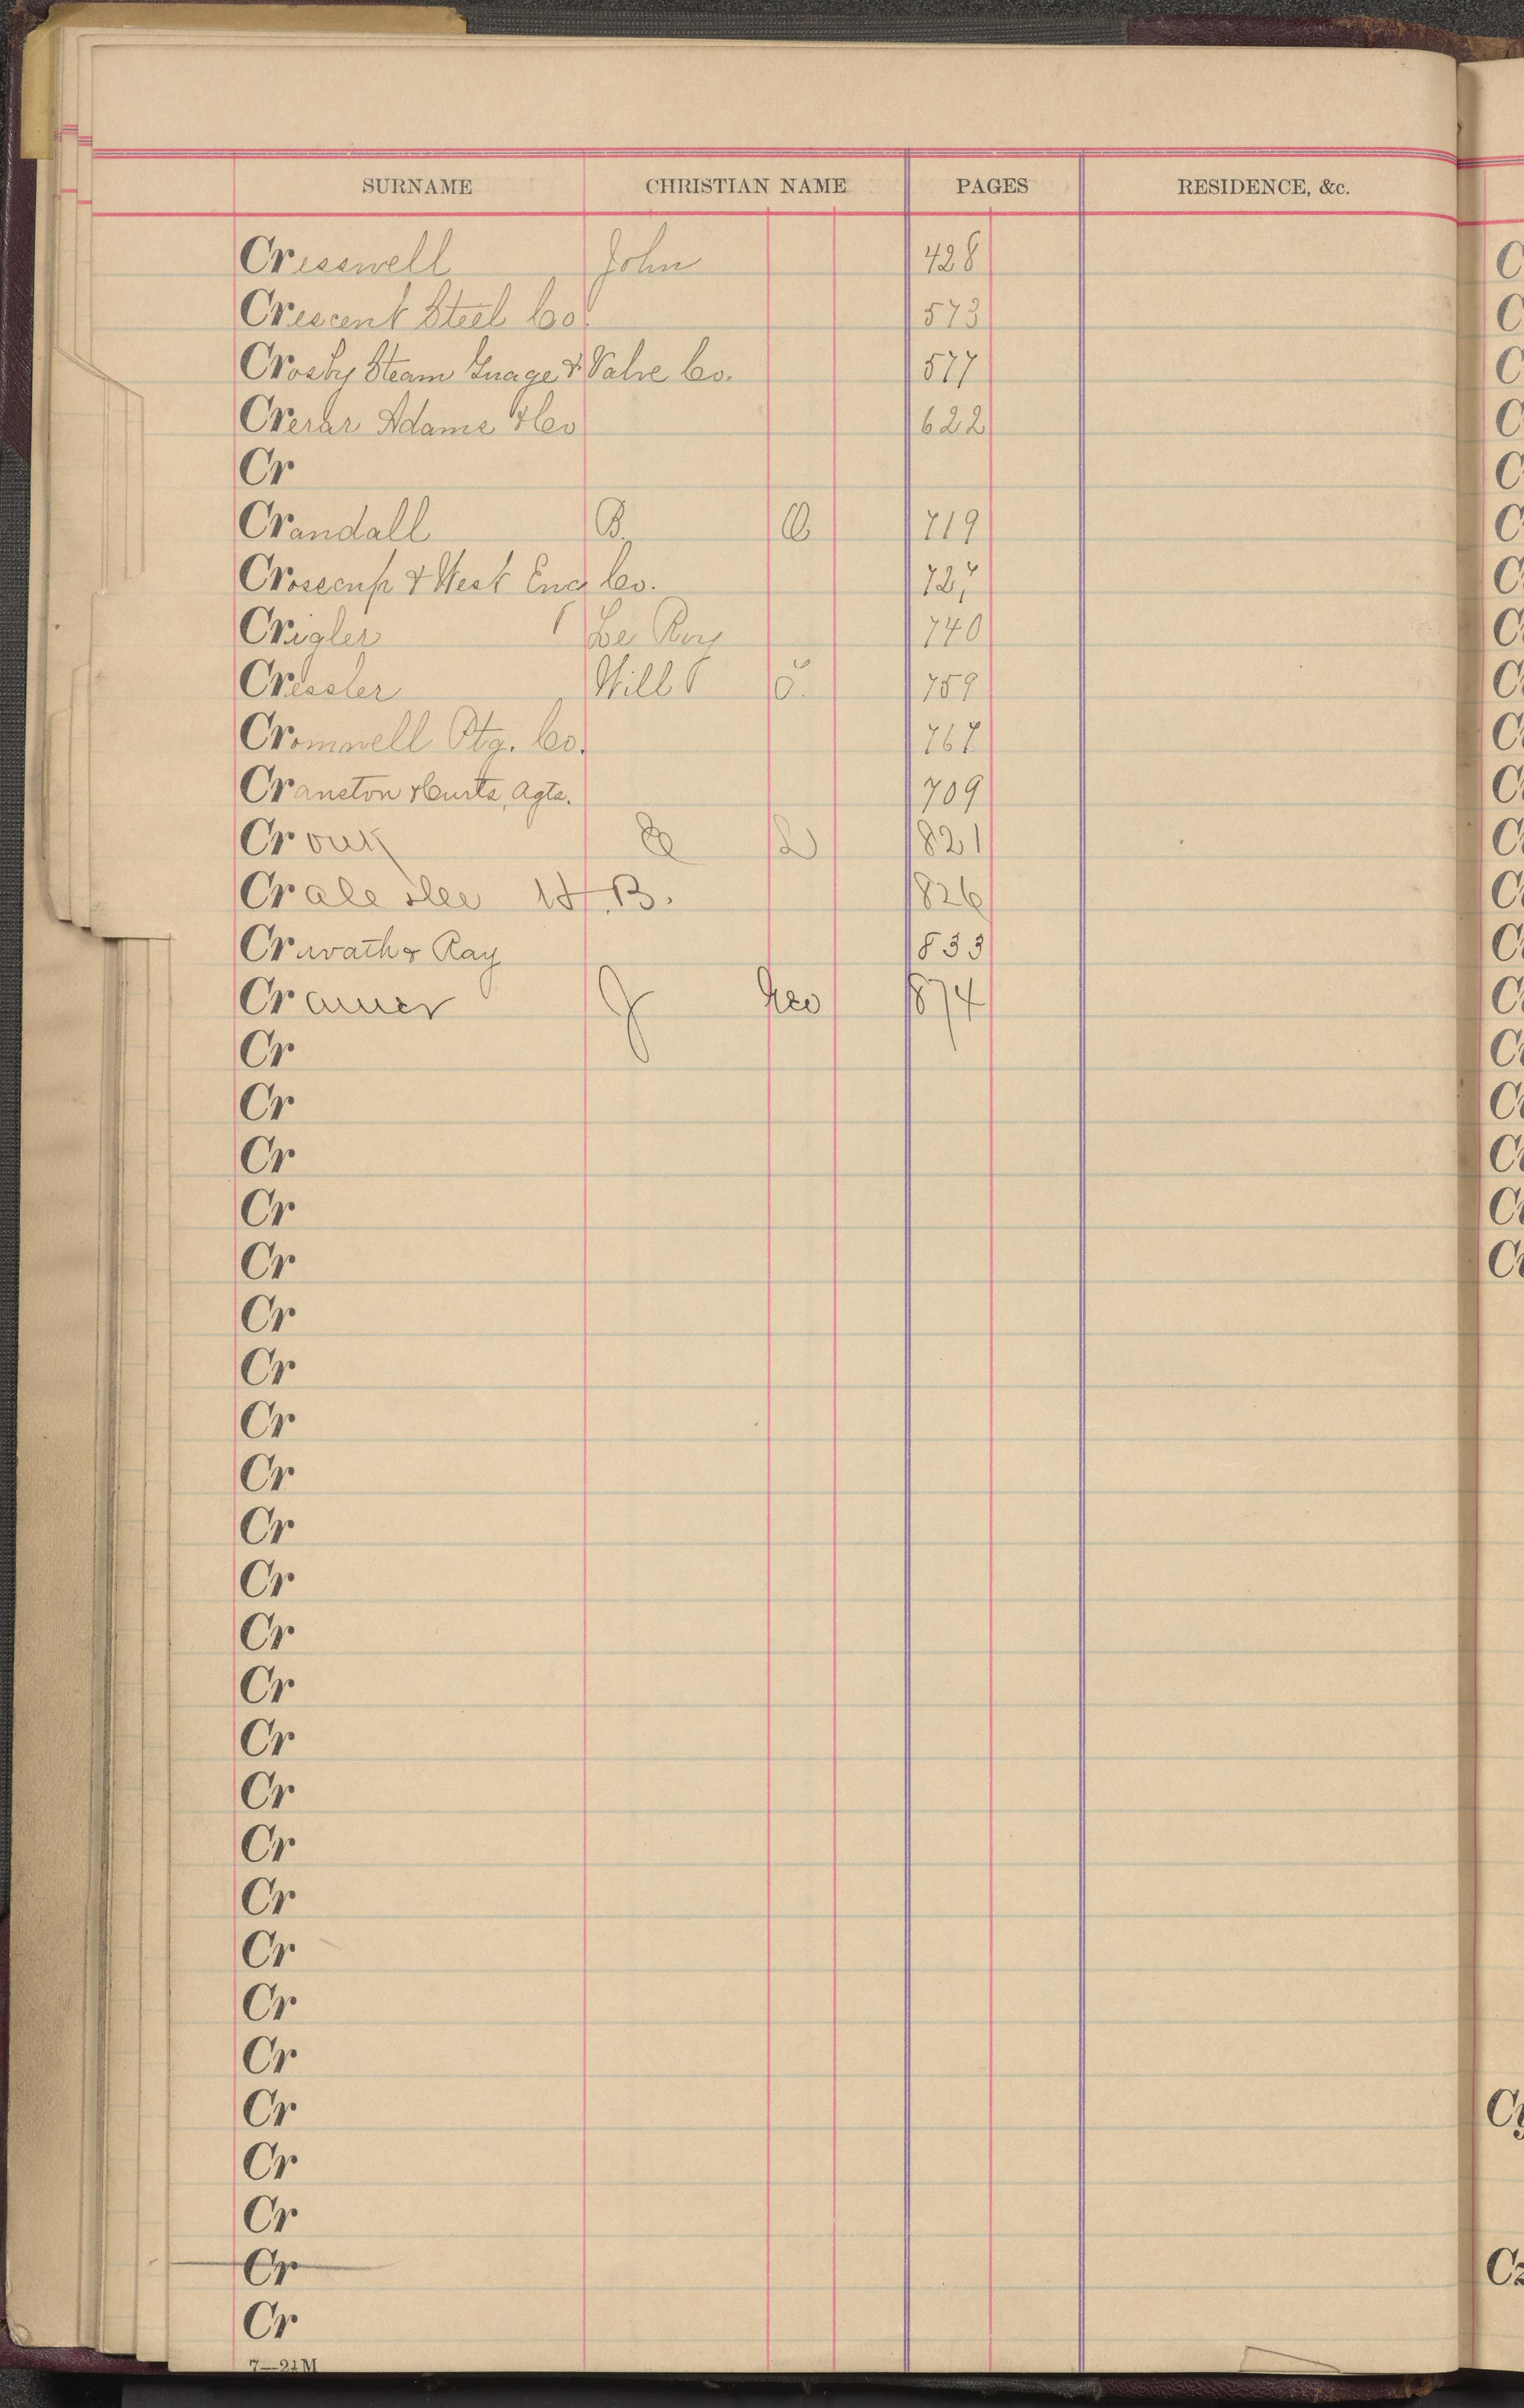 SURNAME CHRISTIAN NAME PAGES RESIDENCE, &c.
Cresswell John 428
Crescent Steel Co. 573
Crosby Steam Guage & Valve Co. 577
Crerar Adams & Co 622
Cr
Crandall B. O 719
Crosscup & West Eng Co. 727
Crigler Le Roy 740
Cressler Will O. 759
Cromwell Ptg. Co. 767
Cranston & Curts, Agts. 709
Crouk E L 821
Cr H. B. 826
Cravath & Ray 833
Cramer J Geo 874
Cr
Cr
Cr
Cr
Cr
Cr
Cr
Cr
Cr
Cr
Cr
Cr
Cr
Cr
Cr
Cr
Cr
Cr
Cr
Cr
Cr
Cr
Cr
Cr
Cr
7—21M